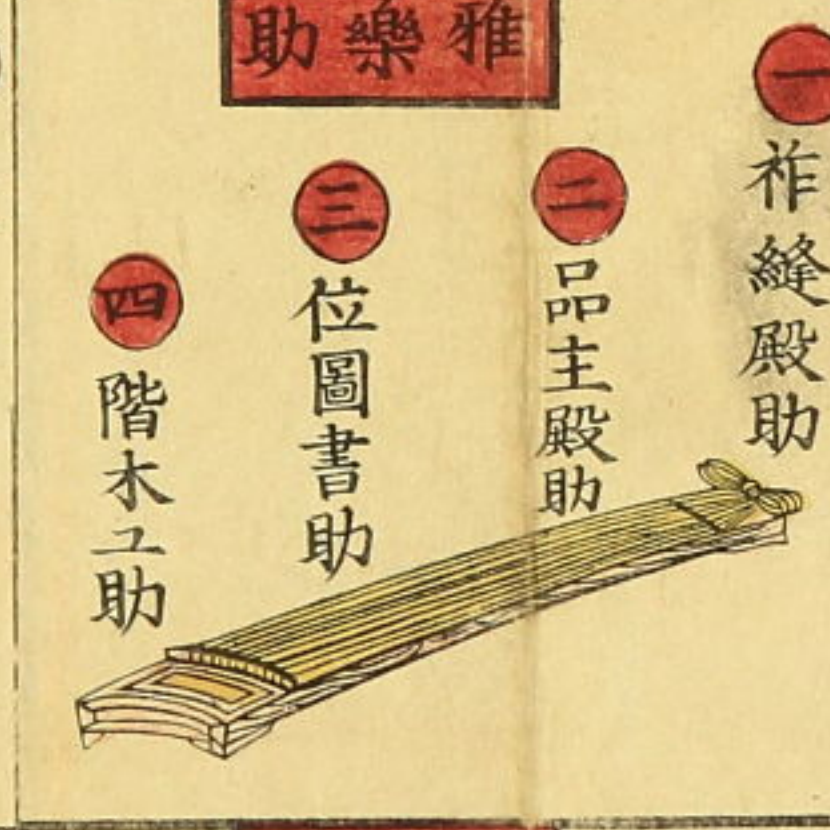 雅樂助
一
祚縫殿助
二
品主殿助
三
位圖書助
四
階木工助